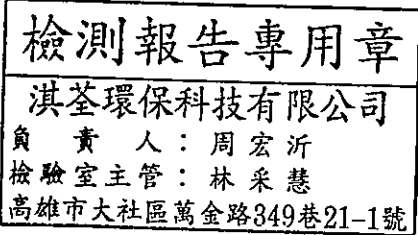 檢測報告專用章
淇荃環保科技有限公司
負責人：周宏沂
檢驗室主管：林采慧
高雄市大社區萬金路349巷21-1號